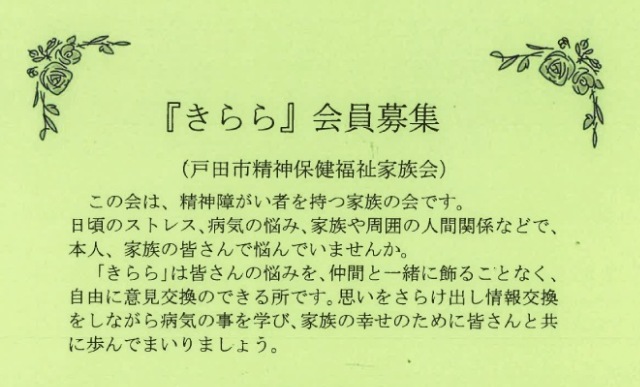 『きらら』会員募集
（戸田市精神保健福祉家族会）
この会は、精神障がい者を持つ家族の会です。
日頃のストレス、病気の悩み、家族や周囲の人間関係などで、
本人、家族の皆さんで悩んでいませんか。
「きらら」は皆さんの悩みを、仲間と一緒に飾ることなく、
自由に意見交換のできる所です。思いをさらけ出し情報交換
をしながら病気の事を学び、家族の幸せのために皆さんと共
に歩んでまいりましょう。